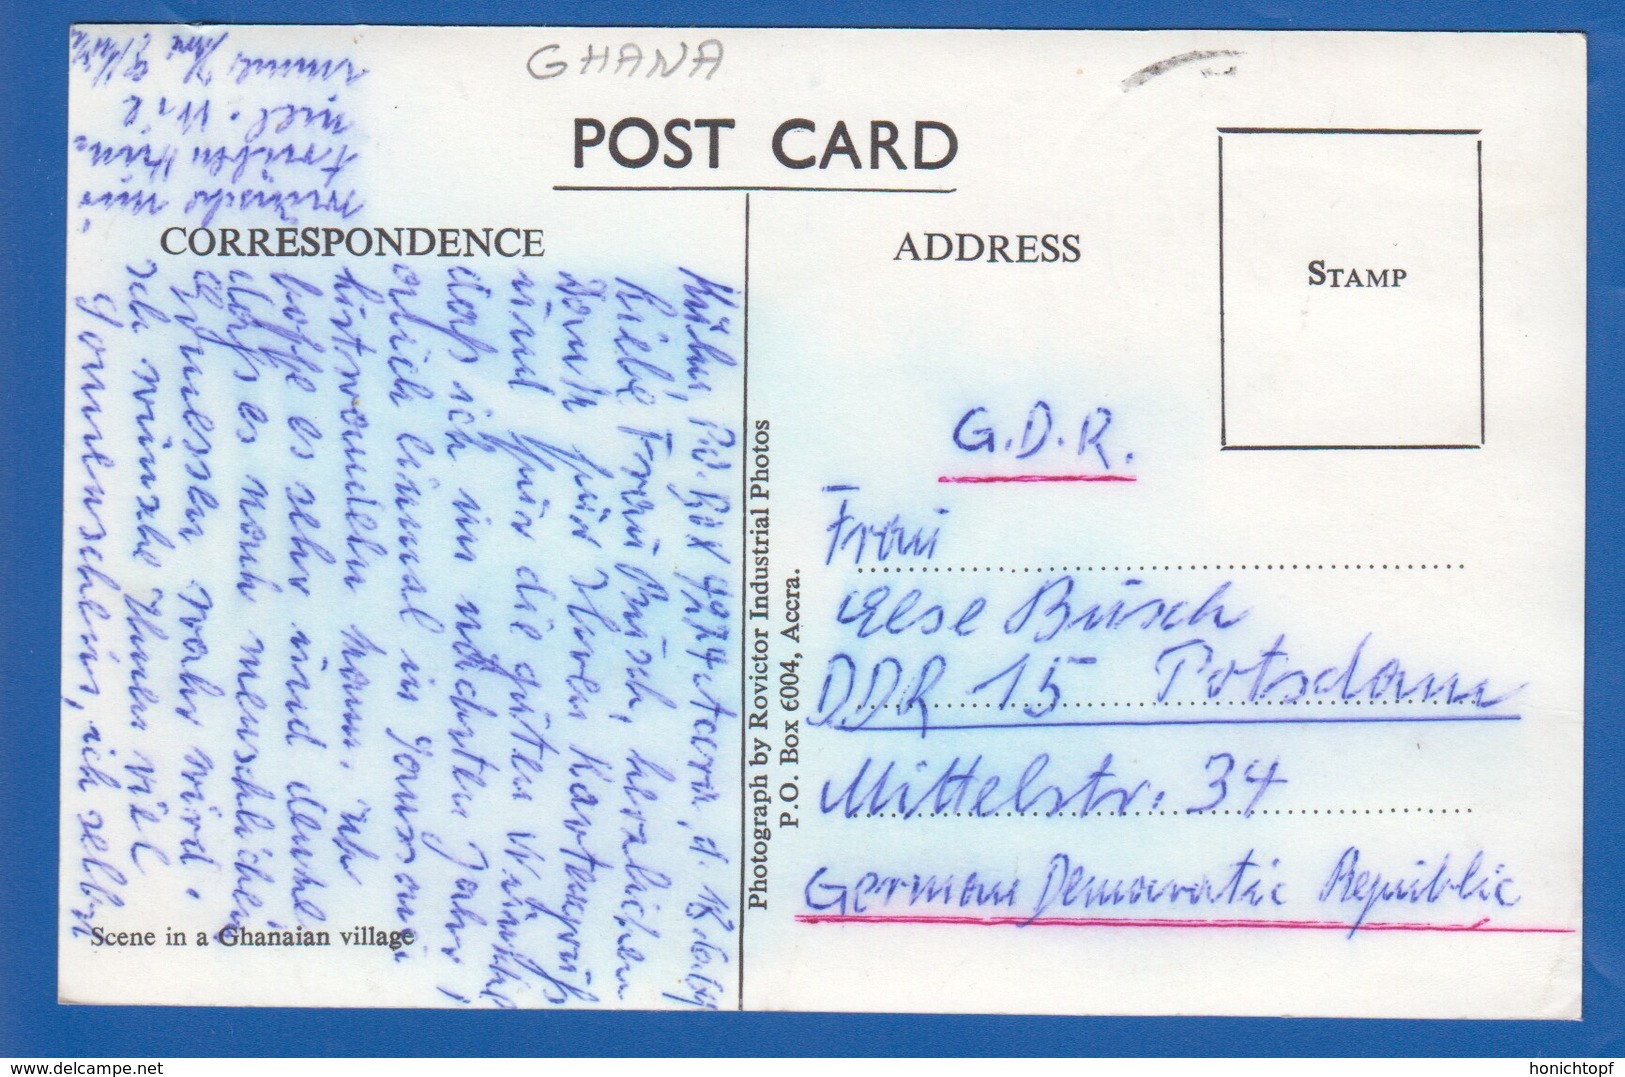 GHANA
POST CARD
CORRESPONDENCE
ADDRESS
STAMP
G.D.R.
Frau
Else Busch
DDR 15 Potsdam
Mittelstr. 34
German Democratic Republic
Photograph by Rovictor Industrial Photos
P.O. Box 6004, Accra.
Scene in a Ghanaian village
P.O. Box 4974 Accra, d.
Liebe Frau Busch, herzlichen
Dank für Ihren Kartengruß
und für die guten Wünsche
daß ich im nächsten Jahr,
endlich einmal in Sanssouci
lustwandeln kann. Ich
hoffe es sehr und denke
daß es nach menschlichem
Ermessen wahr wird.
Ich wünsche Ihnen viel
Sonnenschein, ich selber
wünsche mir
trüben
Wie
immer Ihre
www.delcampe.net
honichtopf